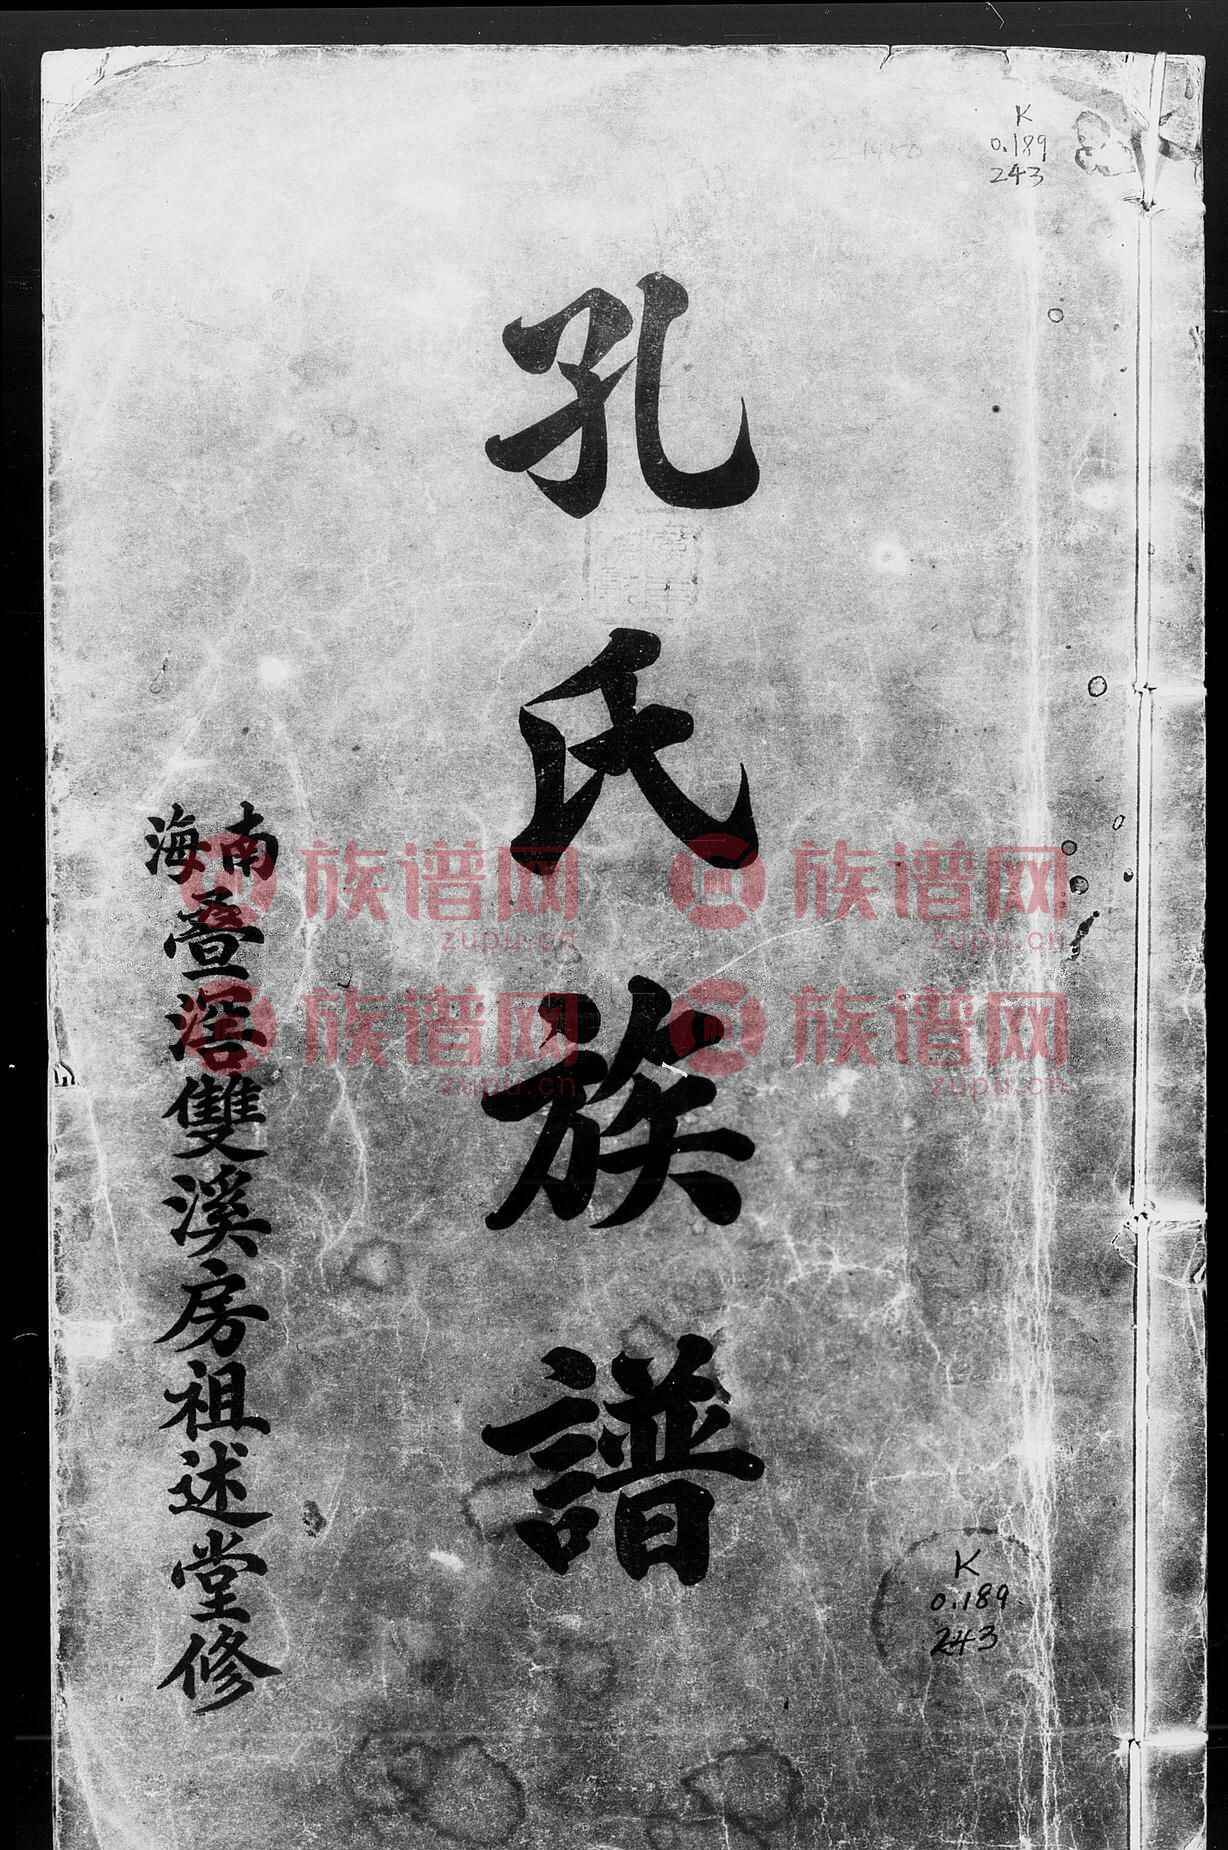 K
0.189
243
孔氏族譜
南海
疊滘雙溪房祖述堂修
K
0.189
243
族谱网
zupu.cn
族谱网
zupu.cn
族谱网
zupu.cn
族谱网
zupu.cn